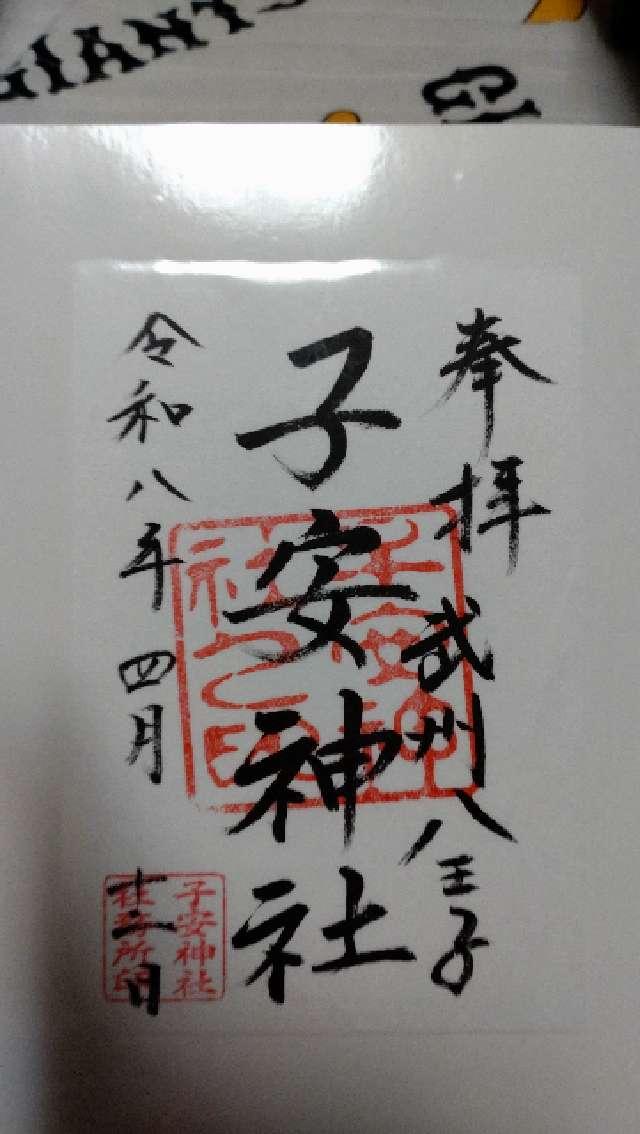 GIANTS
奉拝
武州八王子
子安神社
子安神社之印
令和八年四月十二日
子安神社
社務所印